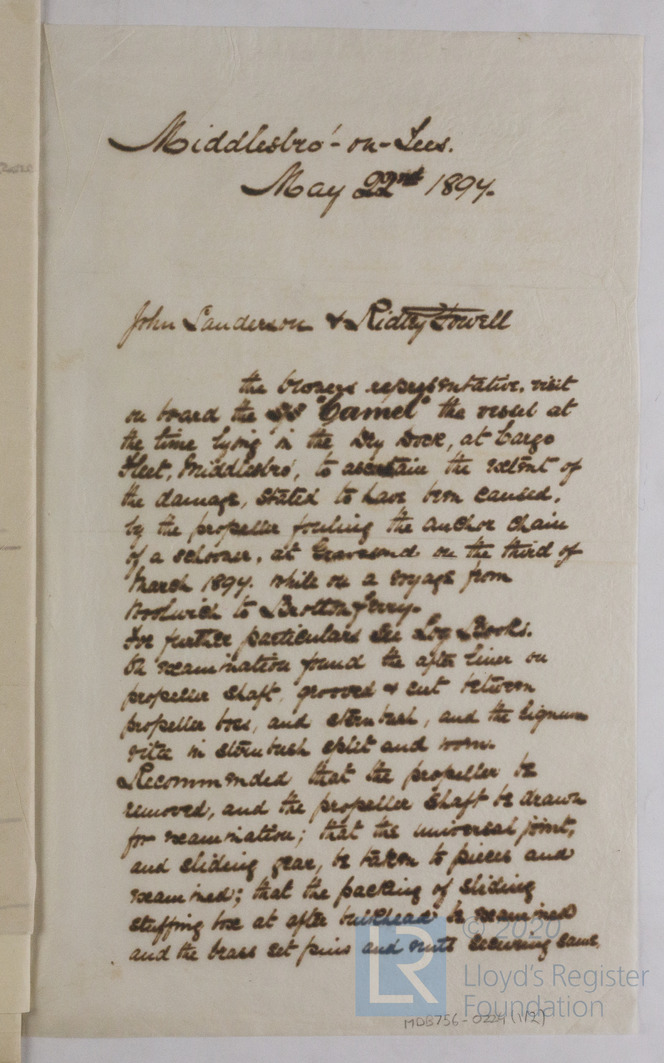 Middlesbro'-on-Tees.
May 22nd 1897.
John Sanderson & Ridley Towell
the owners representative, visit
on board the SS "Camel" the vessel at
the time lying in the Dry Dock, at Cargo
Fleet, Middlesbro', to ascertain the extent of
the damage, stated to have been caused,
by the propeller fouling the anchor chain
of a schooner, at Gravesend on the third of
March 1897. while on a voyage from
Woolwich to Ferry.
For further particulars see Log Books.
On examination found the after liner on
propeller shaft, grooved & cut between
propeller boss, and stern bush, and the lignum
vitæ in stern bush split and worn.
Recommended that the propeller be
removed, and the propeller shaft be drawn
for examination; that the universal joint,
and sliding gear, be taken to pieces and
examined; that the packing of sliding
stuffing box at after bulkhead be examined
and the brass set pins and nuts securing same.
© 2020
LR
Lloyd's Register
Foundation
MDB756-0224(1/2)